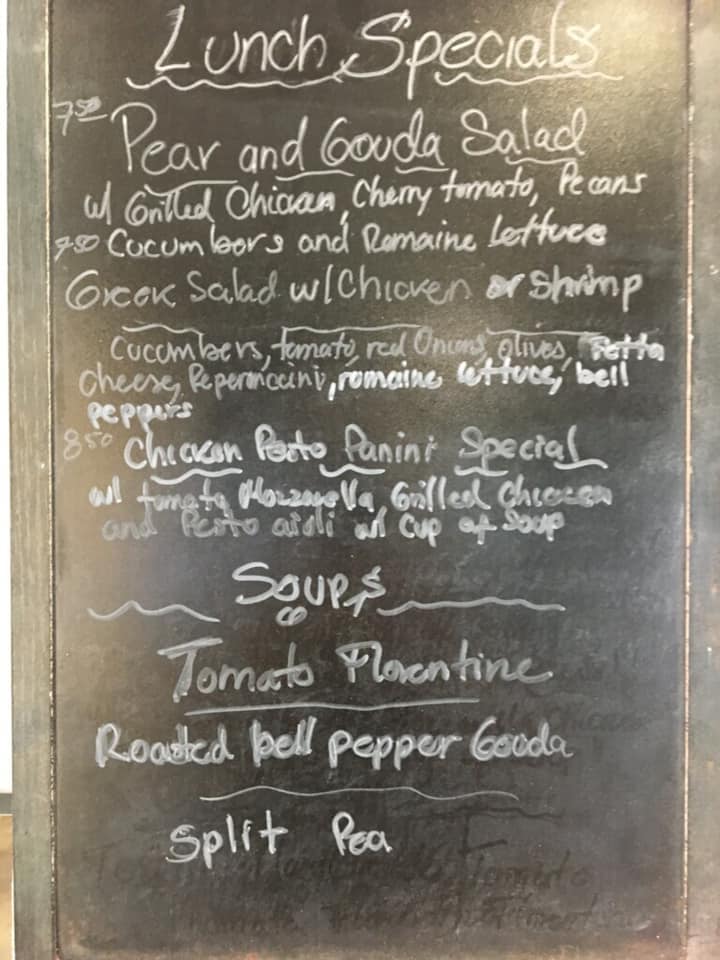 Lunch Specials
7.50 Pear and Gouda Salad
w/ Grilled Chicken, Cherry tomato, Pecans
7.50 Cucumbers and Romaine Lettuce
Greek Salad w/ Chicken or Shrimp
Cucumbers, tomato, red Onions, olives, Fetta
Cheese, Peperoncini, romaine lettuce, bell
peppers
8.50 Chicken Pesto Panini Special
w/ tomato Mozzarella, Grilled Chicken
and Pesto aioli w/ Cup of Soup
Soups
Tomato Florentine
Roasted bell pepper Gouda
Split Pea